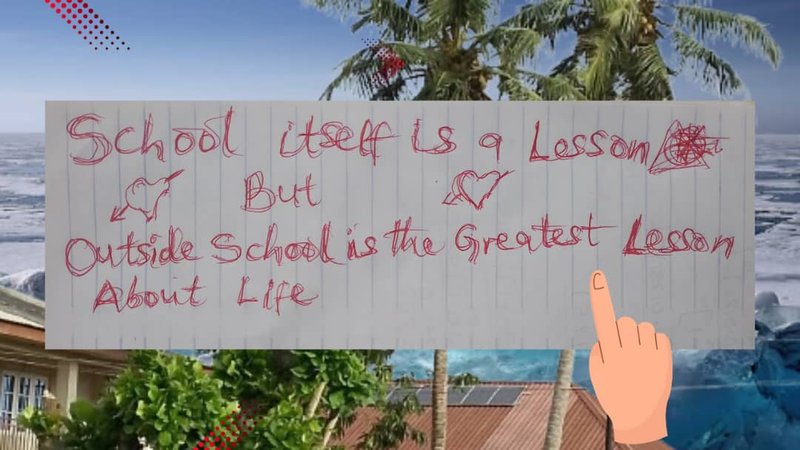 School itself is a Lesson
But
Outside School is the Greatest Lesson
About Life